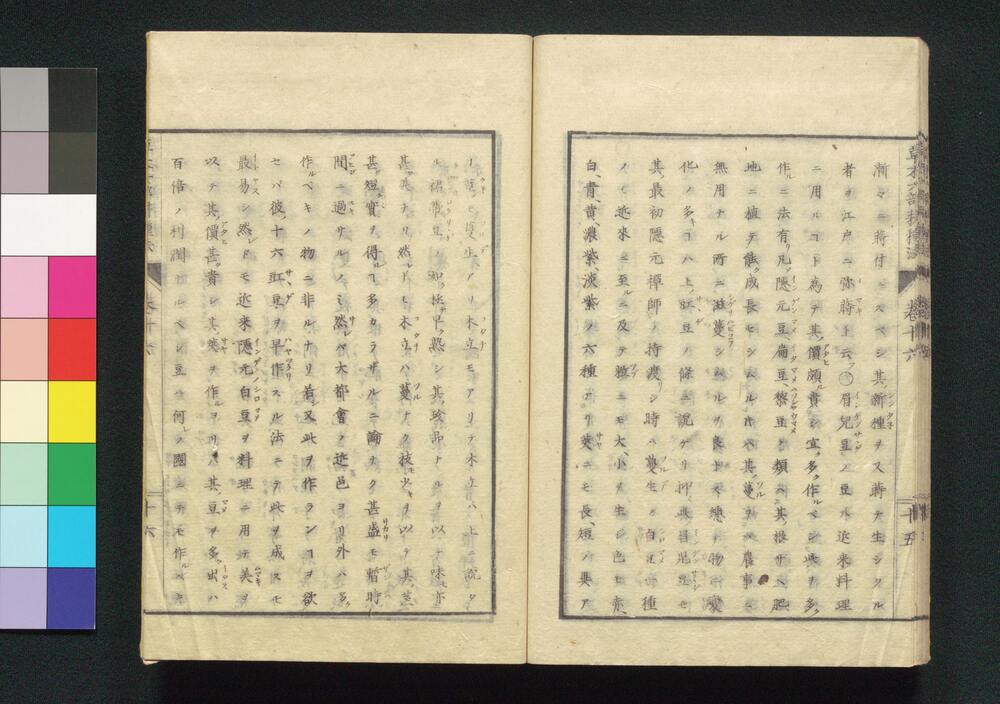 漸々ニ蒔付ヲスベシ其新種ヲ又蒔テ生シタル
者ヲ江戸ニ弥蒔ト云〇眉兒豆ノ豆ハ近来料理
ニ用ルコト為テ其價頗ル貴シ宜ク多ク作ルベシ此ヲ多ク
作ルニ法有リ凡隠元豆扁豆、黎豆ノ類ハ其根サヘ肥
地ニ植テ能ク成長セシムルトキハ其蔓ヲバ農事ニ
無用ナル所ニ滋蔓シムルヲ良トス總テ物ノ變
化ノ多キコハ上ノ豇豆ノ條ニ説ケリ抑眉兒豆モ
其最初隠元禪師ノ持渡リシ時ハ蔓生ノ白豆一種
ノミ近來ニ至ルニ及テ雅ニモ大、小ヲ生シ色モ赤、
白、青、黄、濃紫、淡紫ノ六種アリ莢ニモ長、短ノ異ア
リ蔓モ蔓生アリ木立モアリテ木立ハ上ニ説タ
ル如ク極テ早ク熟シ其珍品ナルヲ以テ味亦
甚美ナリ然レドモ木立ハ蔓ナク枝モ少キヲ以テ其莖
甚短ク實ヲ得ルコ多カラザルニ論ナク甚盛モ暫時ノ
間ニ過サルノミ然レバ大都會ノ近邑ヨリ外ハ多ク
作ルベキノ物ニ非ルナリ若シ又此ヲ作ランコヲ欲
セバ彼ノ十六豇豆ヲ早作スル法ニテ此ヲ成スモ
最易シ然レドモ近来隠元白豆ヲ料理ニ用テ美ヲ
以テ其價甚タ貴シ其莢ヲ作ルヨリハ其豆ヲ多ク出ハ
百倍ノ利潤ナルベシ豆ハ何レノ國ニテモ作ルベキ
巻十六
十五
十六